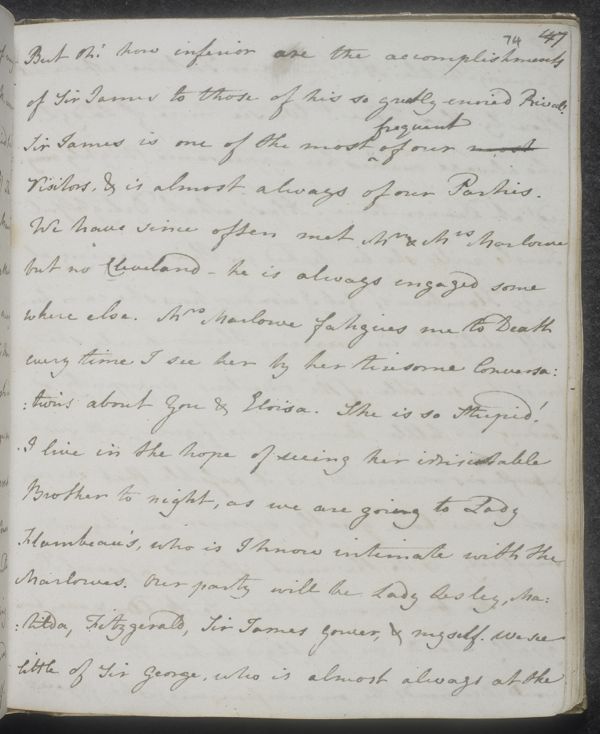 74 47
But Oh! how inferior are the accomplishments
of Sir James to those of his so greatly envied Rival.
frequent
Sir James is one of the most of our most
Visitors, & is almost always of our Parties.
We have since often met Mr & Mrs Marlowe
but no Cleveland - he is always engaged some
where else. Mrs Marlowe fatigues me to Death
every time I see her by her tiresome Conversa:
:tions about You & Eloisa. She is so Stupid!
I live in the hope of seeing her irrisistable
Brother to night, as we are going to Lady
Flambeau's, who is I know intimate with the
Marlowes. Our party will be Lady Lesley, Ma:
:tilda, Fitzgerald, Sir James Gower, & myself. We see
little of Sir George, who is almost always at the